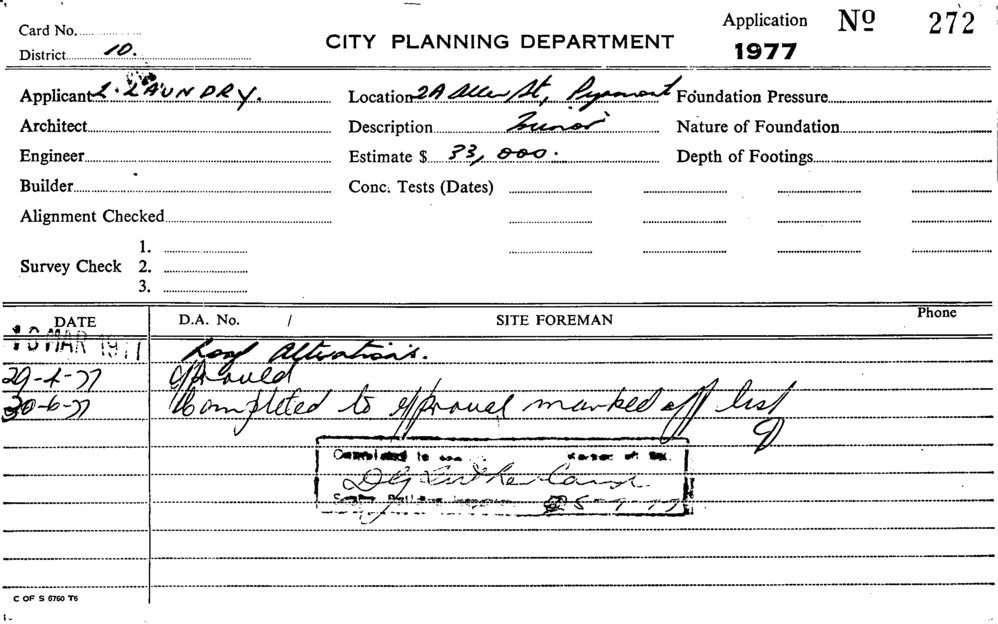 Card No.
District 10.
CITY PLANNING DEPARTMENT
Application No 272
1977
Applicant L. LAUNDRY.
Location 2A Allen St, Pyrmont
Foundation Pressure
Architect
Description
Nature of Foundation
Engineer
Estimate $ 33,000.
Depth of Footings
Builder
Conc. Tests (Dates)
Alignment Checked
Survey Check
1.
2.
3.
DATE
D.A. No. /
SITE FOREMAN
Phone
MAR 1977
Alterations.
29-4-77 Approved
30-6-77 Completed to approval marked off list
Completed to
C OF S 6760 T6